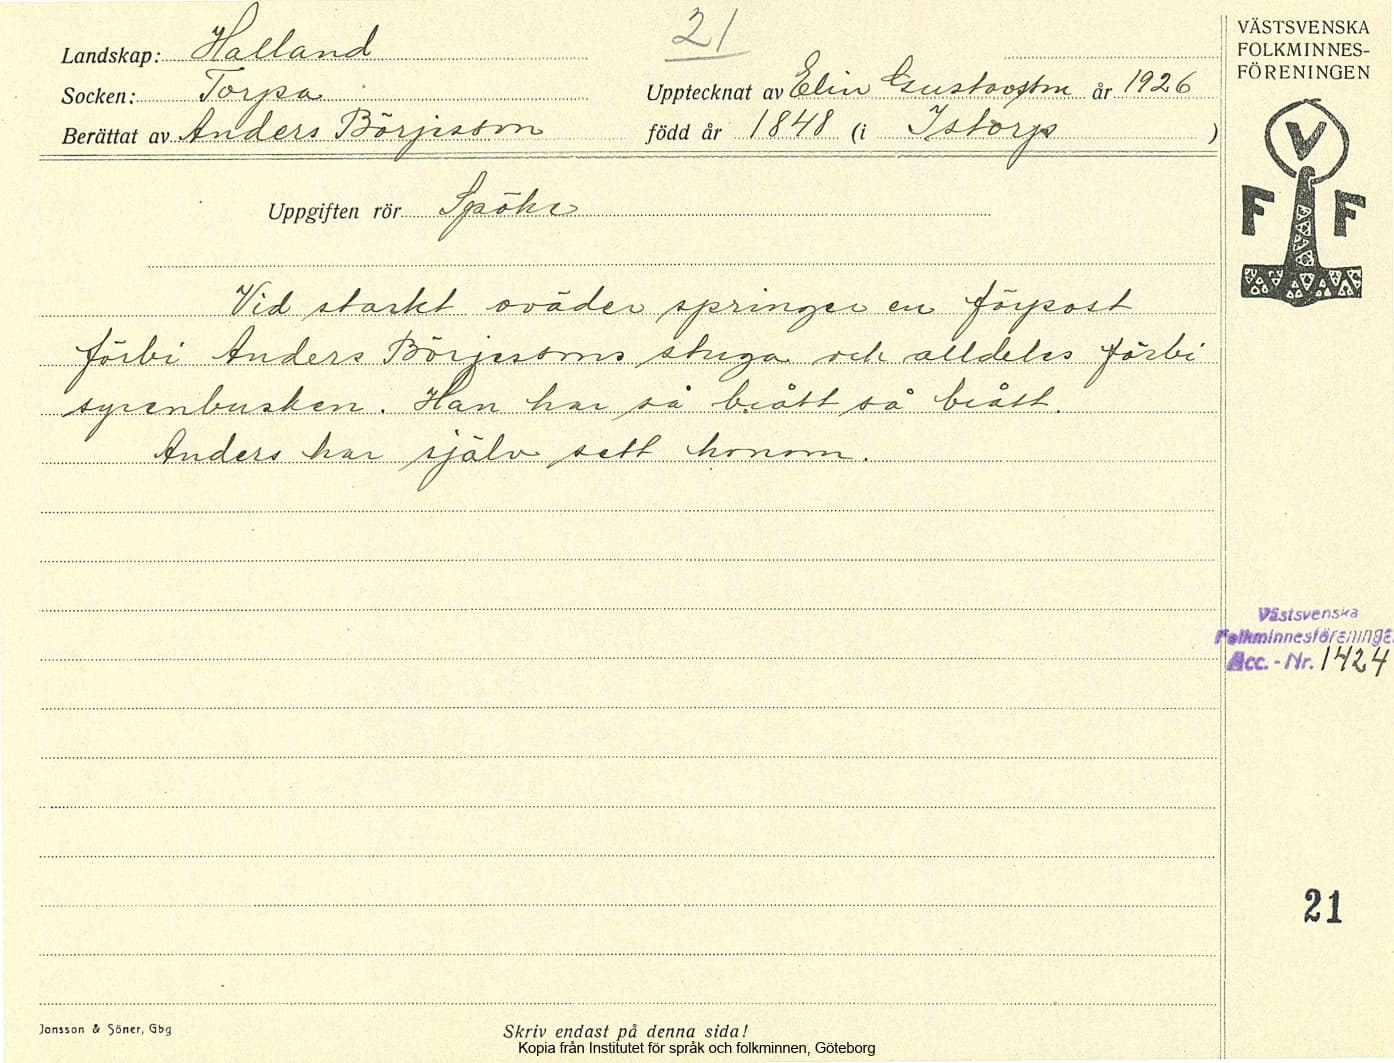 21
Landskap: Halland
Socken: Torpa
Berättat av Anders Börjesson
Upptecknat av Elin Gustavsson år 1926
född år 1848 (i Istorp)
Uppgiften rör Spöke
Vid starkt oväder springer en förpost
förbi Anders Börjessons stuga och alldeles förbi
syrenbusken. Han har så brått så brått.
Anders har själv sett honom.
VÄSTSVENSKA
FOLKMINNES-
FÖRENINGEN
V
F F
Västsvenska
Folkminnesföreninge
Acc. - Nr. 1424
21
Jonsson & Söner, Gbg
Skriv endast på denna sida!
Kopia från Institutet för språk och folkminnen, Göteborg